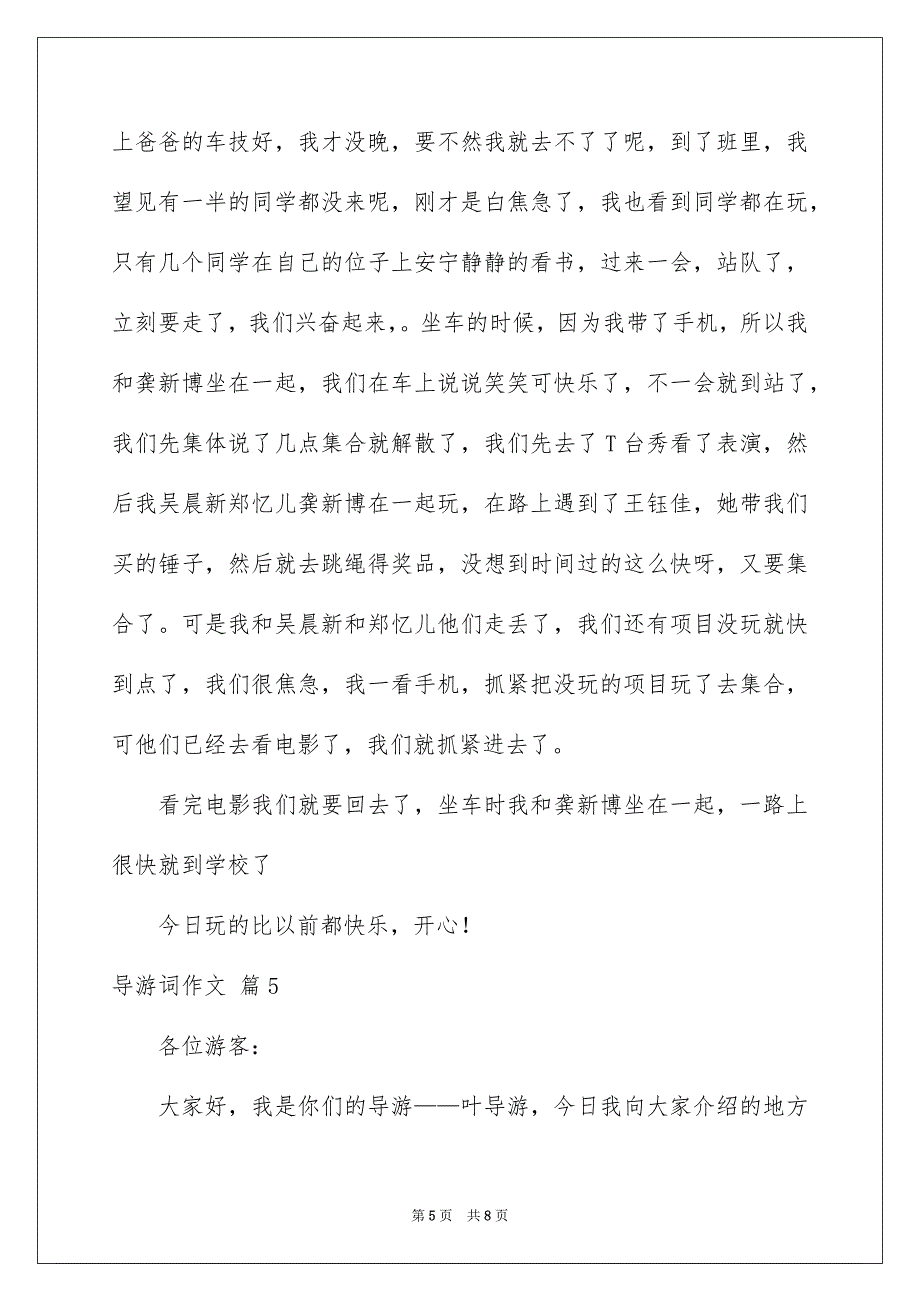 上爸爸的车技好，我才没晚，要不然我就去不了了呢，到了班里，我
望见有一半的同学都没来呢，刚才是白焦急了，我也看到同学都在玩，
只有几个同学在自己的位子上安宁静静的看书，过来一会，站队了，
立刻要走了，我们兴奋起来，。坐车的时候，因为我带了手机，所以我
和龚新博坐在一起，我们在车上说说笑笑可快乐了，不一会就到站了，
我们先集体说了几点集合就解散了，我们先去了T台秀看了表演，然
后我吴晨新郑忆儿龚新博在一起玩，在路上遇到了王钰佳，她带我们
买的锤子，然后就去跳绳得奖品，没想到时间过的这么快呀，又要集
合了。可是我和吴晨新和郑忆儿他们走丢了，我们还有项目没玩就快
到点了，我们很焦急，我一看手机，抓紧把没玩的项目玩了去集合，
可他们已经去看电影了，我们就抓紧进去了。
看完电影我们就要回去了，坐车时我和龚新博坐在一起，一路上
很快就到学校了
今日玩的比以前都快乐，开心！
导游词作文 篇5
各位游客：
大家好，我是你们的导游——叶导游，今日我向大家介绍的地方
第5页 共8页